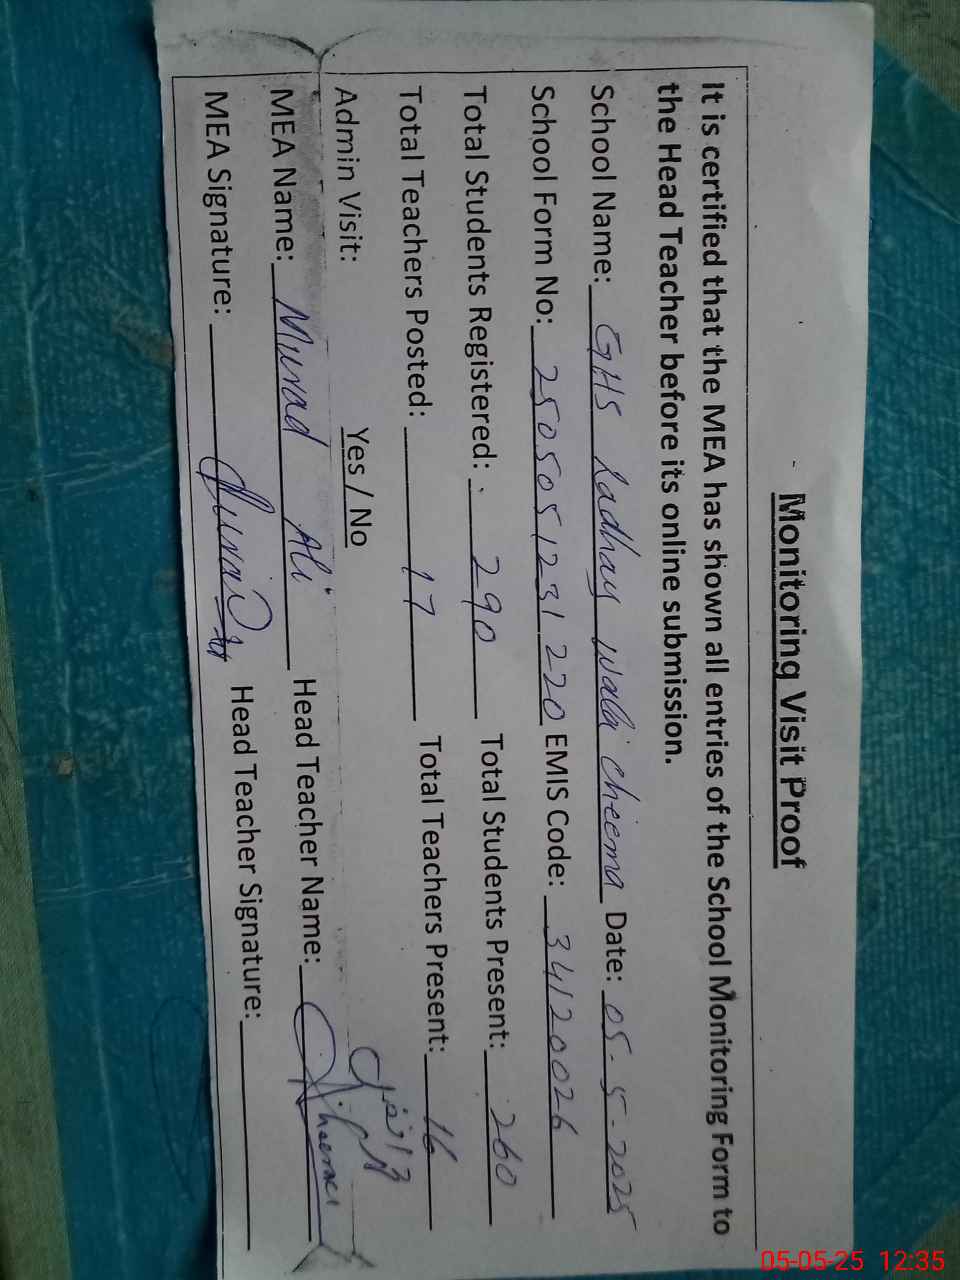 Monitoring Visit Proof
It is certified that the MEA has shown all entries of the School Monitoring Form to
the Head Teacher before its online submission.
School Name: GHS Ladhay wala cheema Date: 05-5-2025
School Form No: 2505051231220 EMIS Code: 34120026
Total Students Registered: 290 Total Students Present: 260
Total Teachers Posted: 17 Total Teachers Present: 16
Admin Visit: Yes / No
MEA Name: Murad Ali Head Teacher Name:
MEA Signature: Head Teacher Signature:
05-05-25 12:35